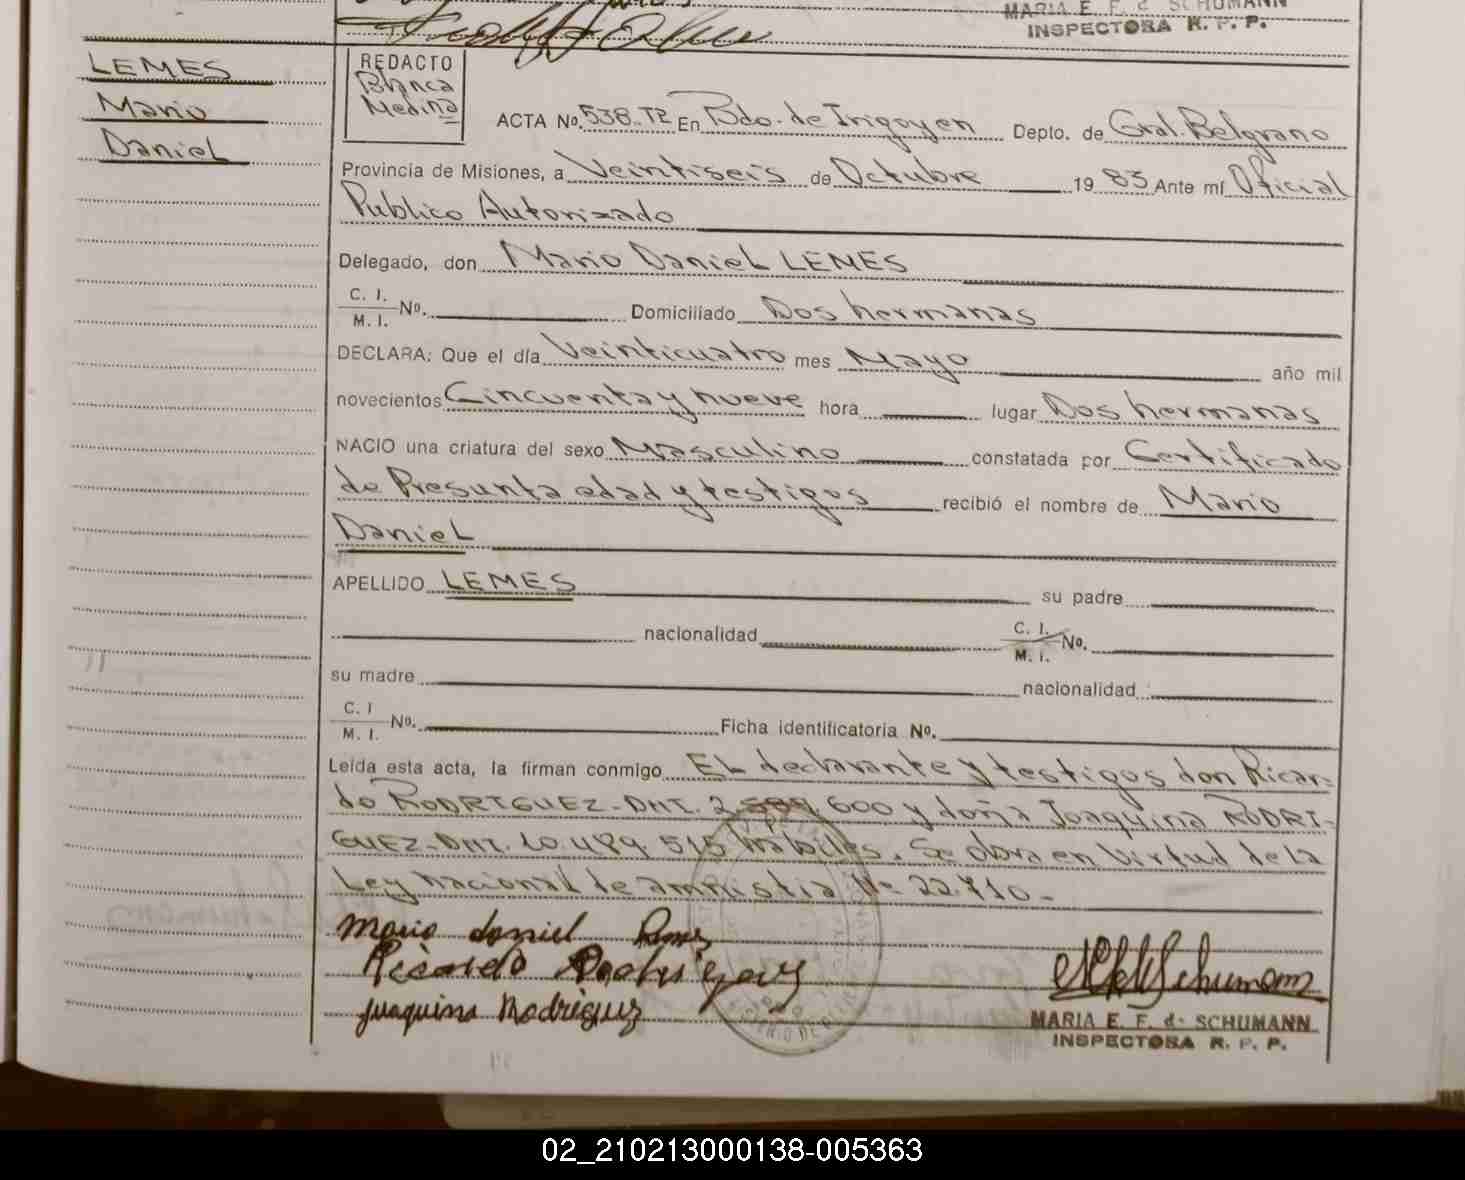 MARIA E. F. d. SCHUMANN
INSPECTORA R. P. P.
LEMES
Mario
Daniel
REDACTO
Blanca
Medina
ACTA No. 538. T2 En Bdo. de Irigoyen Depto. de Gral. Belgrano
Provincia de Misiones, a Veintiseis de Octubre 1983 Ante mí Oficial
Publico Autorizado
Delegado, don Mario Daniel LEMES
C. I.
M. I. No. Domiciliado Dos hermanas
DECLARA: Que el día Veinticuatro mes Mayo año mil
novecientos Cincuenta y nueve hora lugar Dos hermanas
NACIO una criatura del sexo Masculino constatada por Certificado
de Presunta edad y testigos recibió el nombre de Mario
Daniel
APELLIDO LEMES su padre
nacionalidad C. I. M. I. No.
su madre nacionalidad
C. I M. I. No. Ficha identificatoria No.
Leída esta acta, la firman conmigo El declarante y testigos don Ricar-
do RODRIGUEZ-DNI. 2. 600 y doña Joaquina RODRI-
GUEZ-DNI. 10.489.515 habiles. Se obra en Virtud de la
Ley nacional de amnistia Nº 22.710-
Mario daniel
Ricardo Rodriguez
Juaquina Rodriguez
Schumann
MARIA E. F. d. SCHUMANN
INSPECTORA R. P. P.
02_210213000138-005363